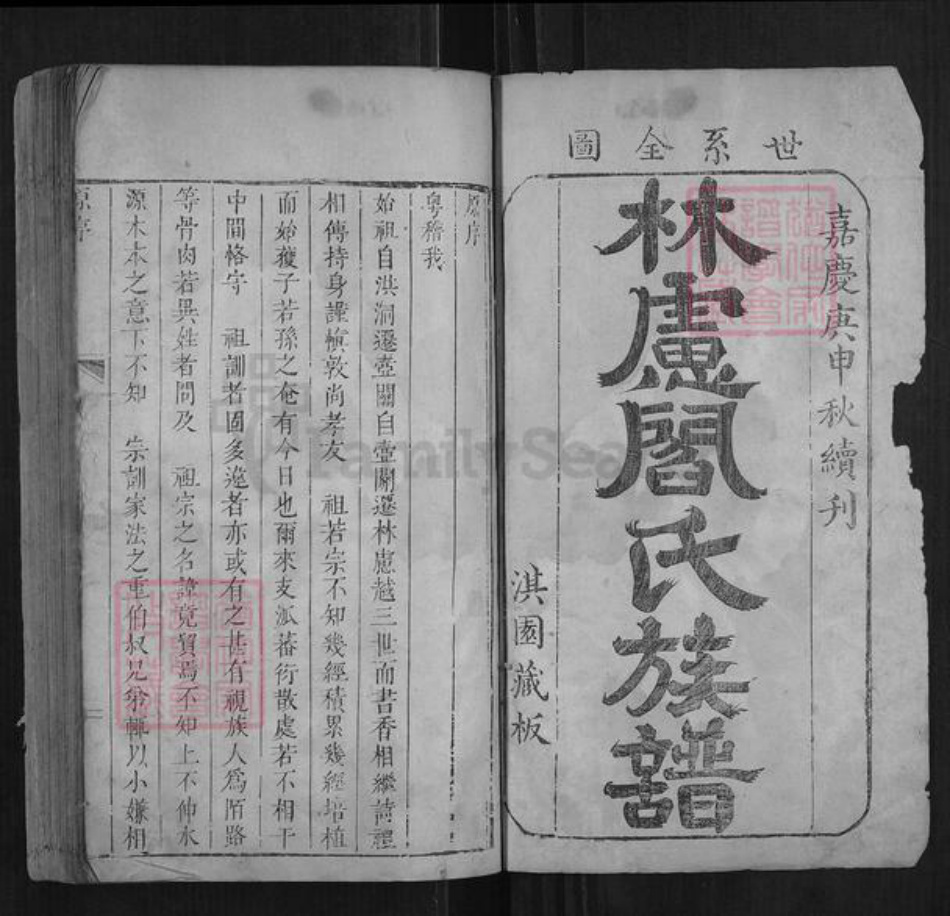 世系全圖
嘉慶庚申秋續刊
林慮閻氏族譜
淇園藏板
原序
粵稽我
始祖自洪洞遷壺關自壺關遷林慮越三世而書香相繼詩禮
相傳持身謹慎敦尚孝友 祖若宗不知幾經積累幾經培植
而始獲子若孫之奄有今日也爾來支派蕃衍散處若不相干
中間恪守 祖訓者固多違者亦或有之甚有視族人為陌路
等骨肉若異姓者問及 祖宗之名諱竟貿焉不知上不伸水
源木本之意下不知 宗訓家法之重伯叔兄弟輒以小嫌相
原序